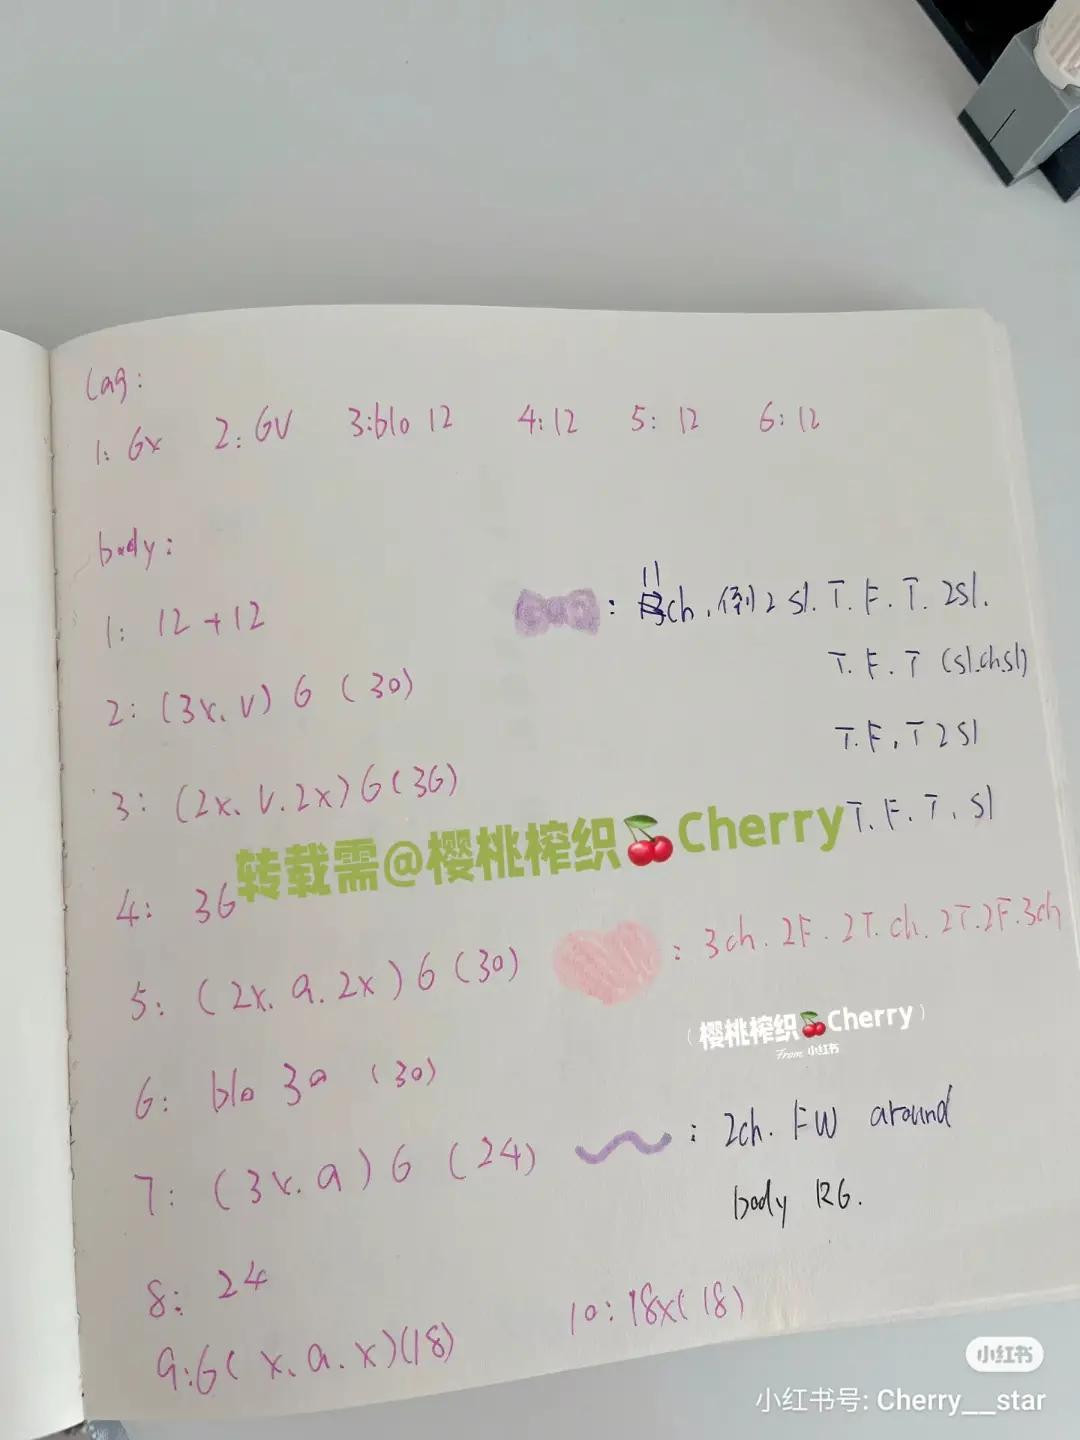 leg:
1: 6x 2: 6V 3:blo 12 4:12 5: 12 6: 12
body:
1: 12 + 12
2: (3x. v) 6 (30)
3: (2x. v. 2x) 6 (36)
4: 36
5: (2x. a. 2x) 6 (30)
6: blo 30 (30)
7: (3x. a) 6 (24)
8: 24
9:6( x. a. x)(18)
10: 18x( 18)
: 11 ch. 倒2 sl. T. F. T. 2sl.
T. F. T (sl.ch.sl)
T. F. T 2 sl
T. F. T. sl
: 3ch. 2F. 2T. ch. 2T. 2F. 3ch
: 2ch. FW around
body R6.
转载需@樱桃榨织🍒Cherry
(樱桃榨织🍒Cherry)
From 小红书
小红书
小红书号: Cherry__star